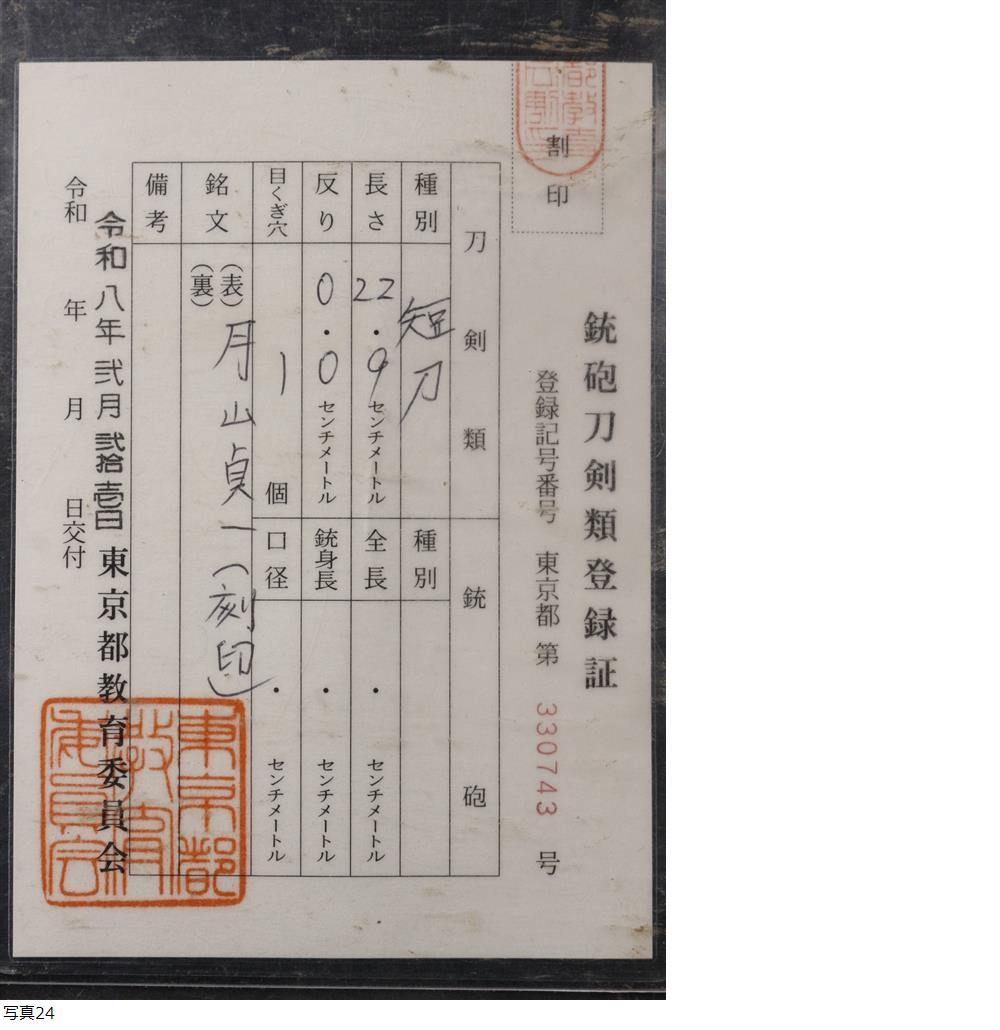 割印
銃砲刀剣類登録証
登録記号番号 東京都 第 330743 号
刀剣類
銃砲
種別 短刀
長さ 22.9 センチメートル
反り 0.0 センチメートル
目くぎ穴 1 個
銘文 (表) 月山貞一(刻印)
(裏)
備考
種別
全長 ・ センチメートル
銃身長 ・ センチメートル
口径 ・ センチメートル
令和八年弐月弐拾壱日
令和 年 月 日交付
東京都教育委員会
東京都
教育
委員会
写真24